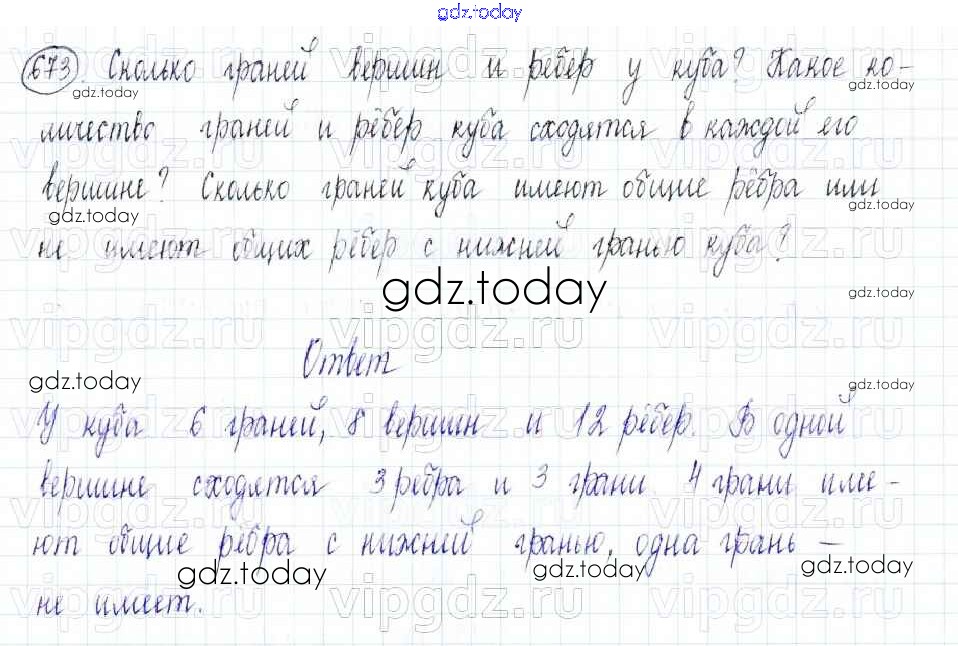 gdz.today
673 Сколько граней вершин и рёбер у куба? Какое ко-
gdz.today gdz.today
личество граней и рёбер куба сходятся в каждой его
вершине? Сколько граней куба имеют общие рёбра или
gdz.today gdz.today
не имеют общих рёбер с нижней гранью куба?
gdz.today gdz.today
vipgdz.ru vipgdz.ru vipgdz.ru
Ответ
gdz.today gdz.today
У куба 6 граней, 8 вершин и 12 рёбер. В одной
вершине сходятся 3 ребра и 3 грани. 4 грани име-
ют общие рёбра с нижней гранью, одна грань –
gdz.today gdz.today gdz.today
не имеет.
vipgdz.ru vipgdz.ru